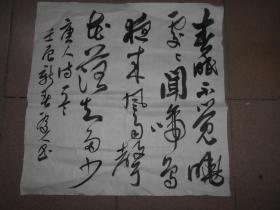 春眠不觉晓
处处闻啼鸟
夜来风雨声
花落知多少
唐人诗一首
壬辰新春